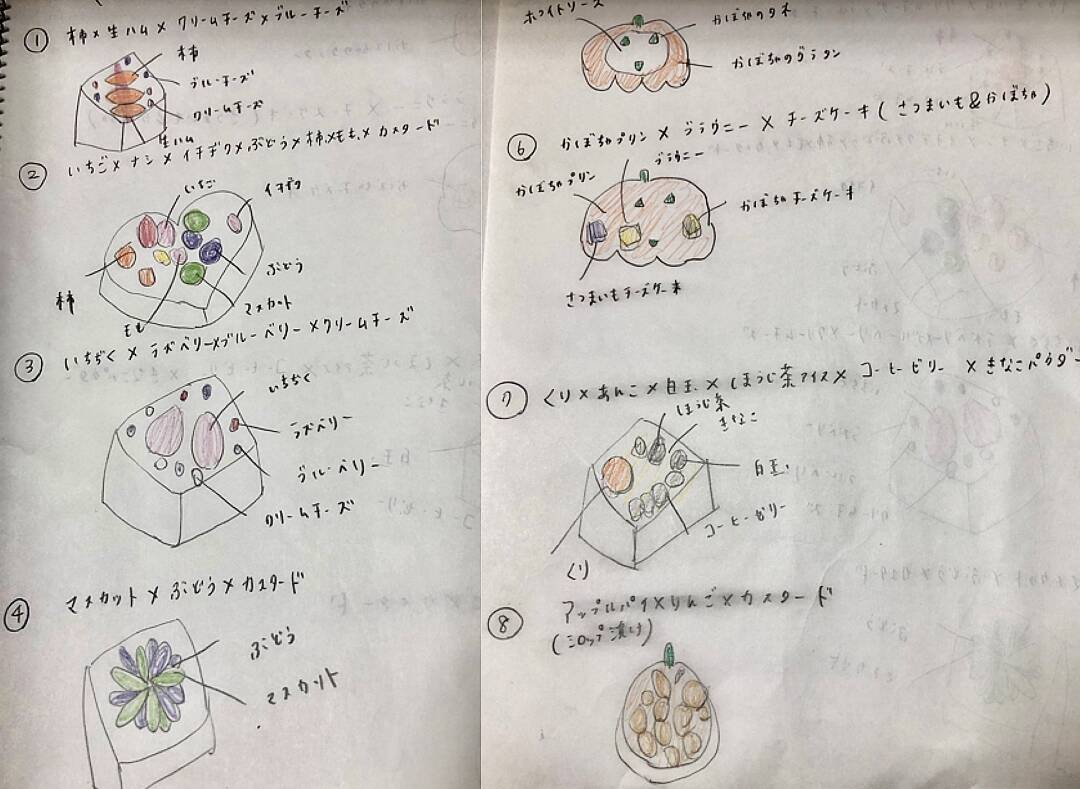 ① 柿×生ハム×クリームチーズ×ブルーチーズ
柿
ブルーチーズ
クリームチーズ
生ハム
② いちご×ナシ×イチヂク×ぶどう×柿×もも×カスタード
いちご
イチヂク
ぶどう
マスカット
柿
もも
③ いちぢく×ラズベリー×ブルーベリー×クリームチーズ
いちぢく
ラズベリー
ブルーベリー
クリームチーズ
④ マスカット×ぶどう×カスタード
ぶどう
マスカット
ホワイトソース
かぼちゃのタネ
かぼちゃのグラタン
⑥ かぼちゃプリン×ブラウニー×チーズケーキ(さつまいも&かぼちゃ)
ブラウニー
かぼちゃプリン
かぼちゃチーズケーキ
さつまいもチーズケーキ
⑦ くり×あんこ×白玉×ほうじ茶アイス×コーヒーゼリー×きなこパウダー
ほうじ茶
きなこ
白玉
コーヒーゼリー
くり
⑧ アップルパイ×りんご×カスタード
(シロップ漬け)